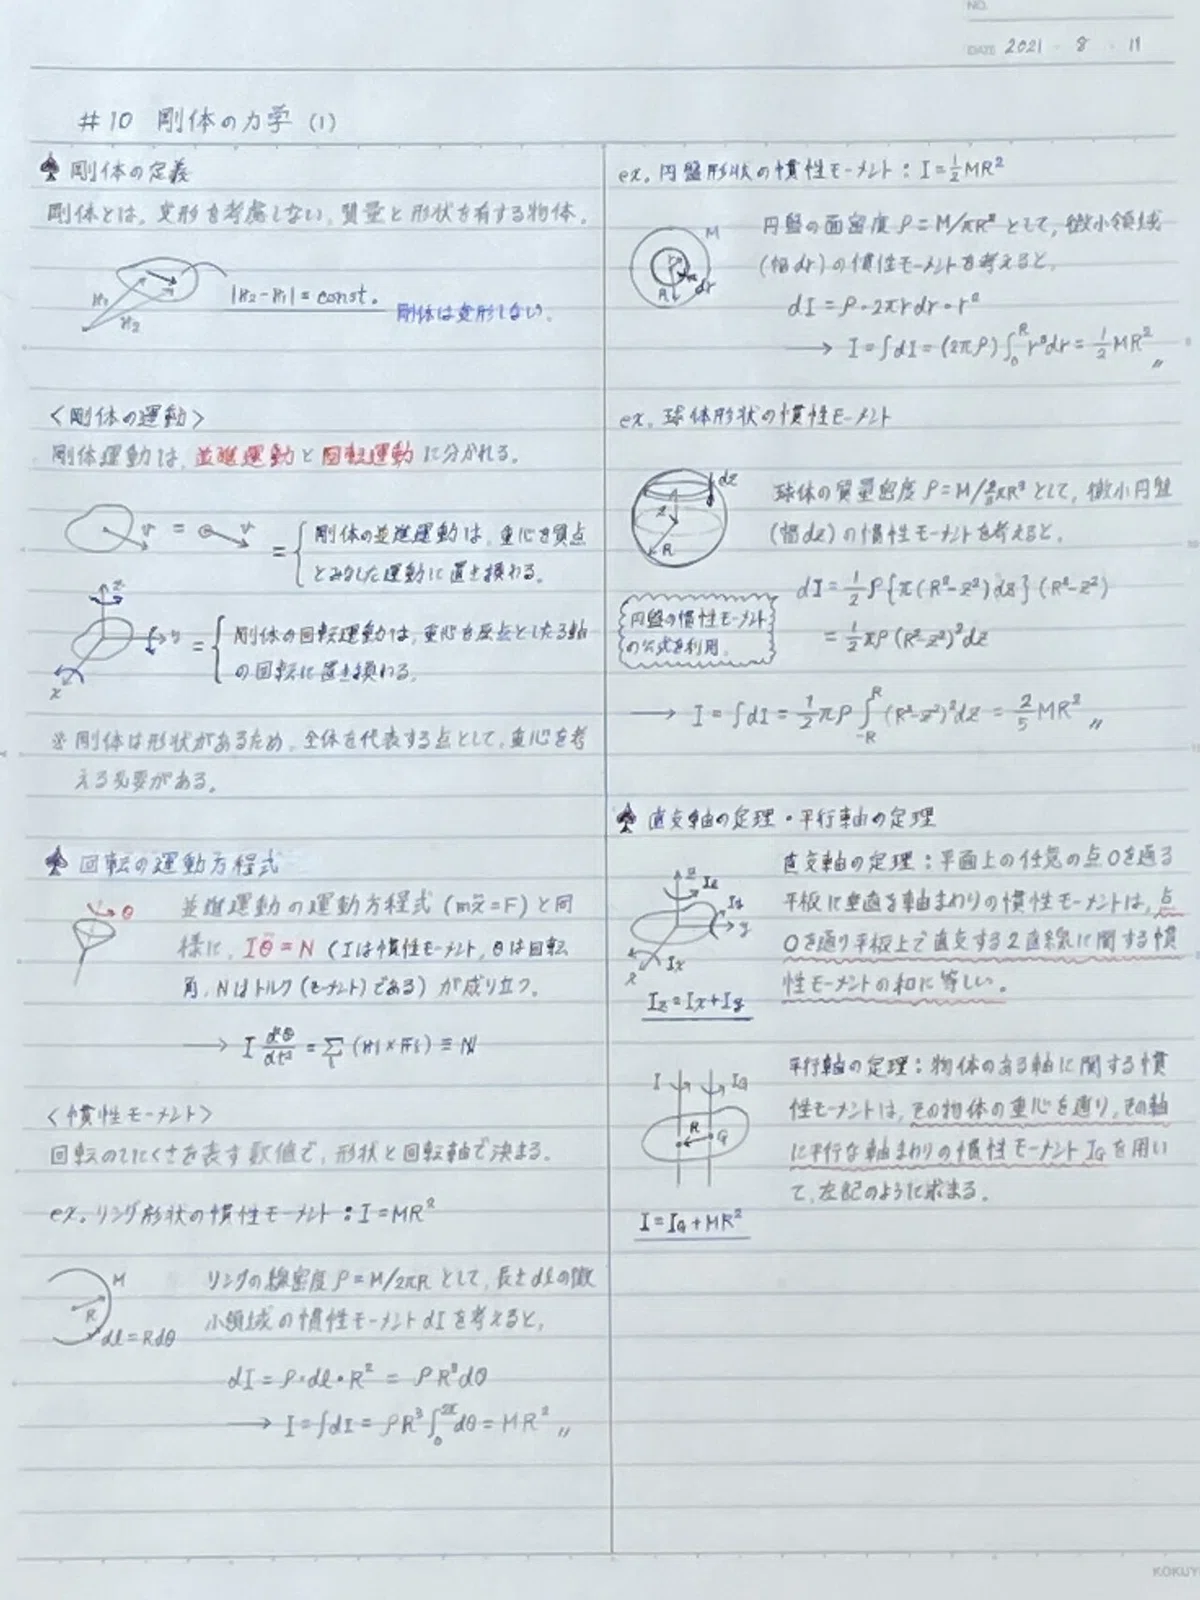 NO.
DATE 2021 · 8 · 19
#10 剛体の力学 (1)
♠ 剛体の定義
剛体とは、変形を考慮しない、質量と形状を有する物体。
r₁
r₂
|r₂-r₁| = const.
剛体は変形しない。
<剛体の運動>
剛体運動は、並進運動と回転運動に分かれる。
v = v = { 剛体の並進運動は、重心を質点
とみなした運動に置き換わる。
z
y = { 剛体の回転運動は、重心を原点とした3軸
の回転に置き換わる。
x
※ 剛体は形状があるため、全体を代表する点として、重心を考
える必要がある。
♠ 回転の運動方程式
θ
並進運動の運動方程式 (mẍ=F) と同
様に、Iθ̈ = N (Iは慣性モーメント、θは回転
角、Nはトルク(モーメント)である) が成り立つ。
→ I d²θ/dt² = Σᵢ (rᵢ×Fᵢ) ≡ N
<慣性モーメント>
回転のしにくさを表す数値で、形状と回転軸で決まる。
ex. リング形状の慣性モーメント : I = MR²
M
R
dl = Rdθ
リングの線密度 ρ = M/2πR として、長さdlの微
小領域の慣性モーメントdIを考えると、
dI = ρ·dl·R² = ρR³dθ
→ I = ∫dI = ρR³∫₀^2π dθ = MR² 〃
ex. 円盤形状の慣性モーメント : I = ½MR²
M
r
dr
R
円盤の面密度 ρ = M/πR² として、微小領域
(幅dr) の慣性モーメントを考えると、
dI = ρ·2πrdr·r²
→ I = ∫dI = (2πρ)∫₀^R r³dr = ½MR² 〃
ex. 球体形状の慣性モーメント
dz
z
R
球体の質量密度 ρ = M/4/3πR³ として、微小円盤
(幅dz) の慣性モーメントを考えると、
dI = ½ρ{π(R²-z²)dz}(R²-z²)
円盤の慣性モーメント
の公式を利用。
= ½πρ(R²-z²)²dz
→ I = ∫dI = ½πρ∫₋R^R (R²-z²)²dz = 2/5 MR² 〃
♠ 直交軸の定理・平行軸の定理
z
Iz
Iy
y
x
Ix
Iz = Ix + Iy
直交軸の定理 : 平面上の任意の点Oを通る
平板に垂直な軸まわりの慣性モーメントは、点
Oを通り平板上で直交する2直線に関する慣
性モーメントの和に等しい。
I
IG
R
G
I = IG + MR²
平行軸の定理 : 物体のある軸に関する慣
性モーメントは、その物体の重心を通り、その軸
に平行な軸まわりの慣性モーメントIGを用い
て、左記のように求まる。
KOKUY